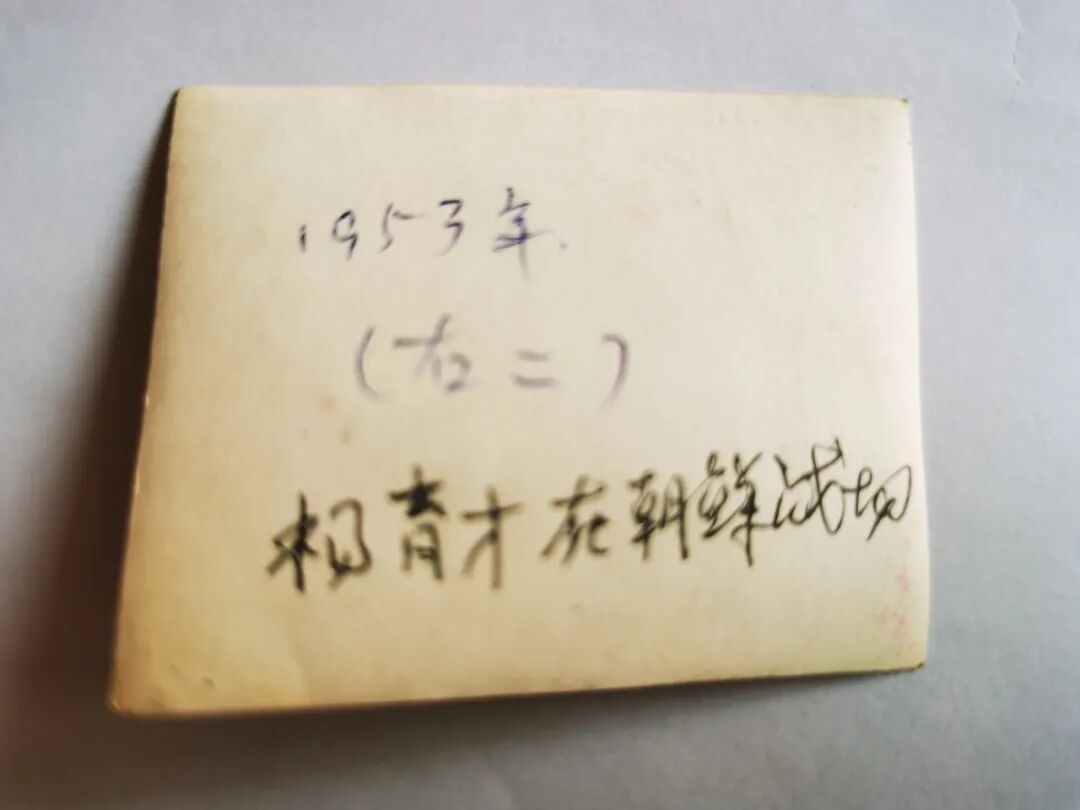 1953年.
(右二)
杨育才在朝鲜战场